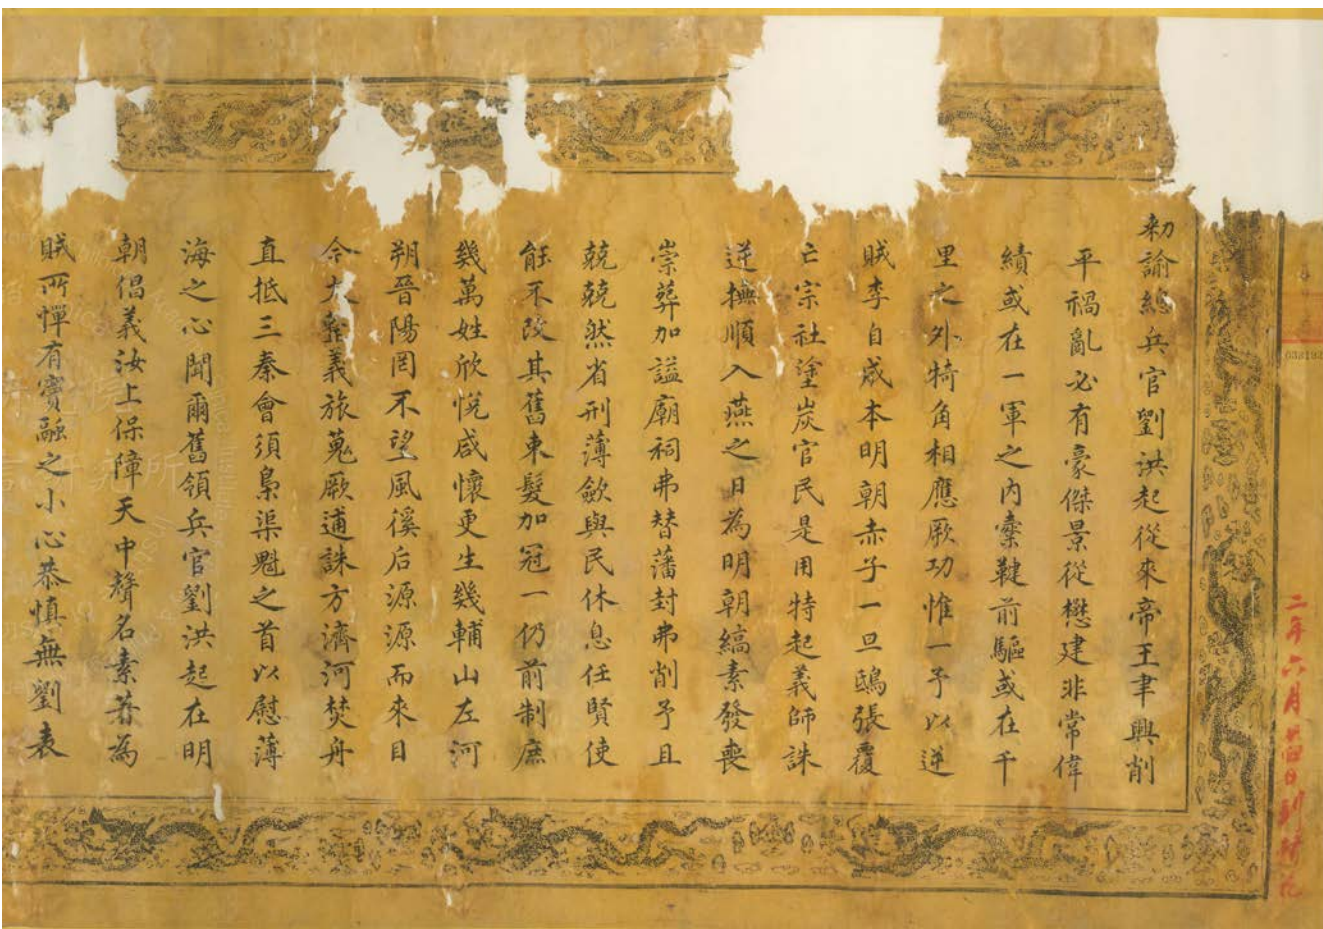 二年六月廿四日到
勑諭總兵官劉洪起從來帝王聿興削
平禍亂必有豪傑景從懋建非常偉
績或在一軍之內櫜鞬前驅或在千
里之外犄角相應厥功惟一予以逆
賊李自成本明朝赤子一旦鴟張覆
亡宗社塗炭官民是用特起義師誅
逆撫順入燕之日為明朝縞素發喪
崇葬加謚廟祠弗替藩封弗削予且
兢兢然省刑薄歛與民休息任賢使
能不改其舊束髮加冠一仍前制庶
幾萬姓欣悅咸懷更生幾輔山左河
朔晉陽罔不望風徯后源源而來目
今大義旅蒐厥逋誅方濟河焚舟
直抵三秦會須梟渠魁之首以慰薄
海之心聞爾舊領兵官劉洪起在明
朝倡義汝上保障天中聲名素著為
賊所憚有竇融之小心恭慎無劉表